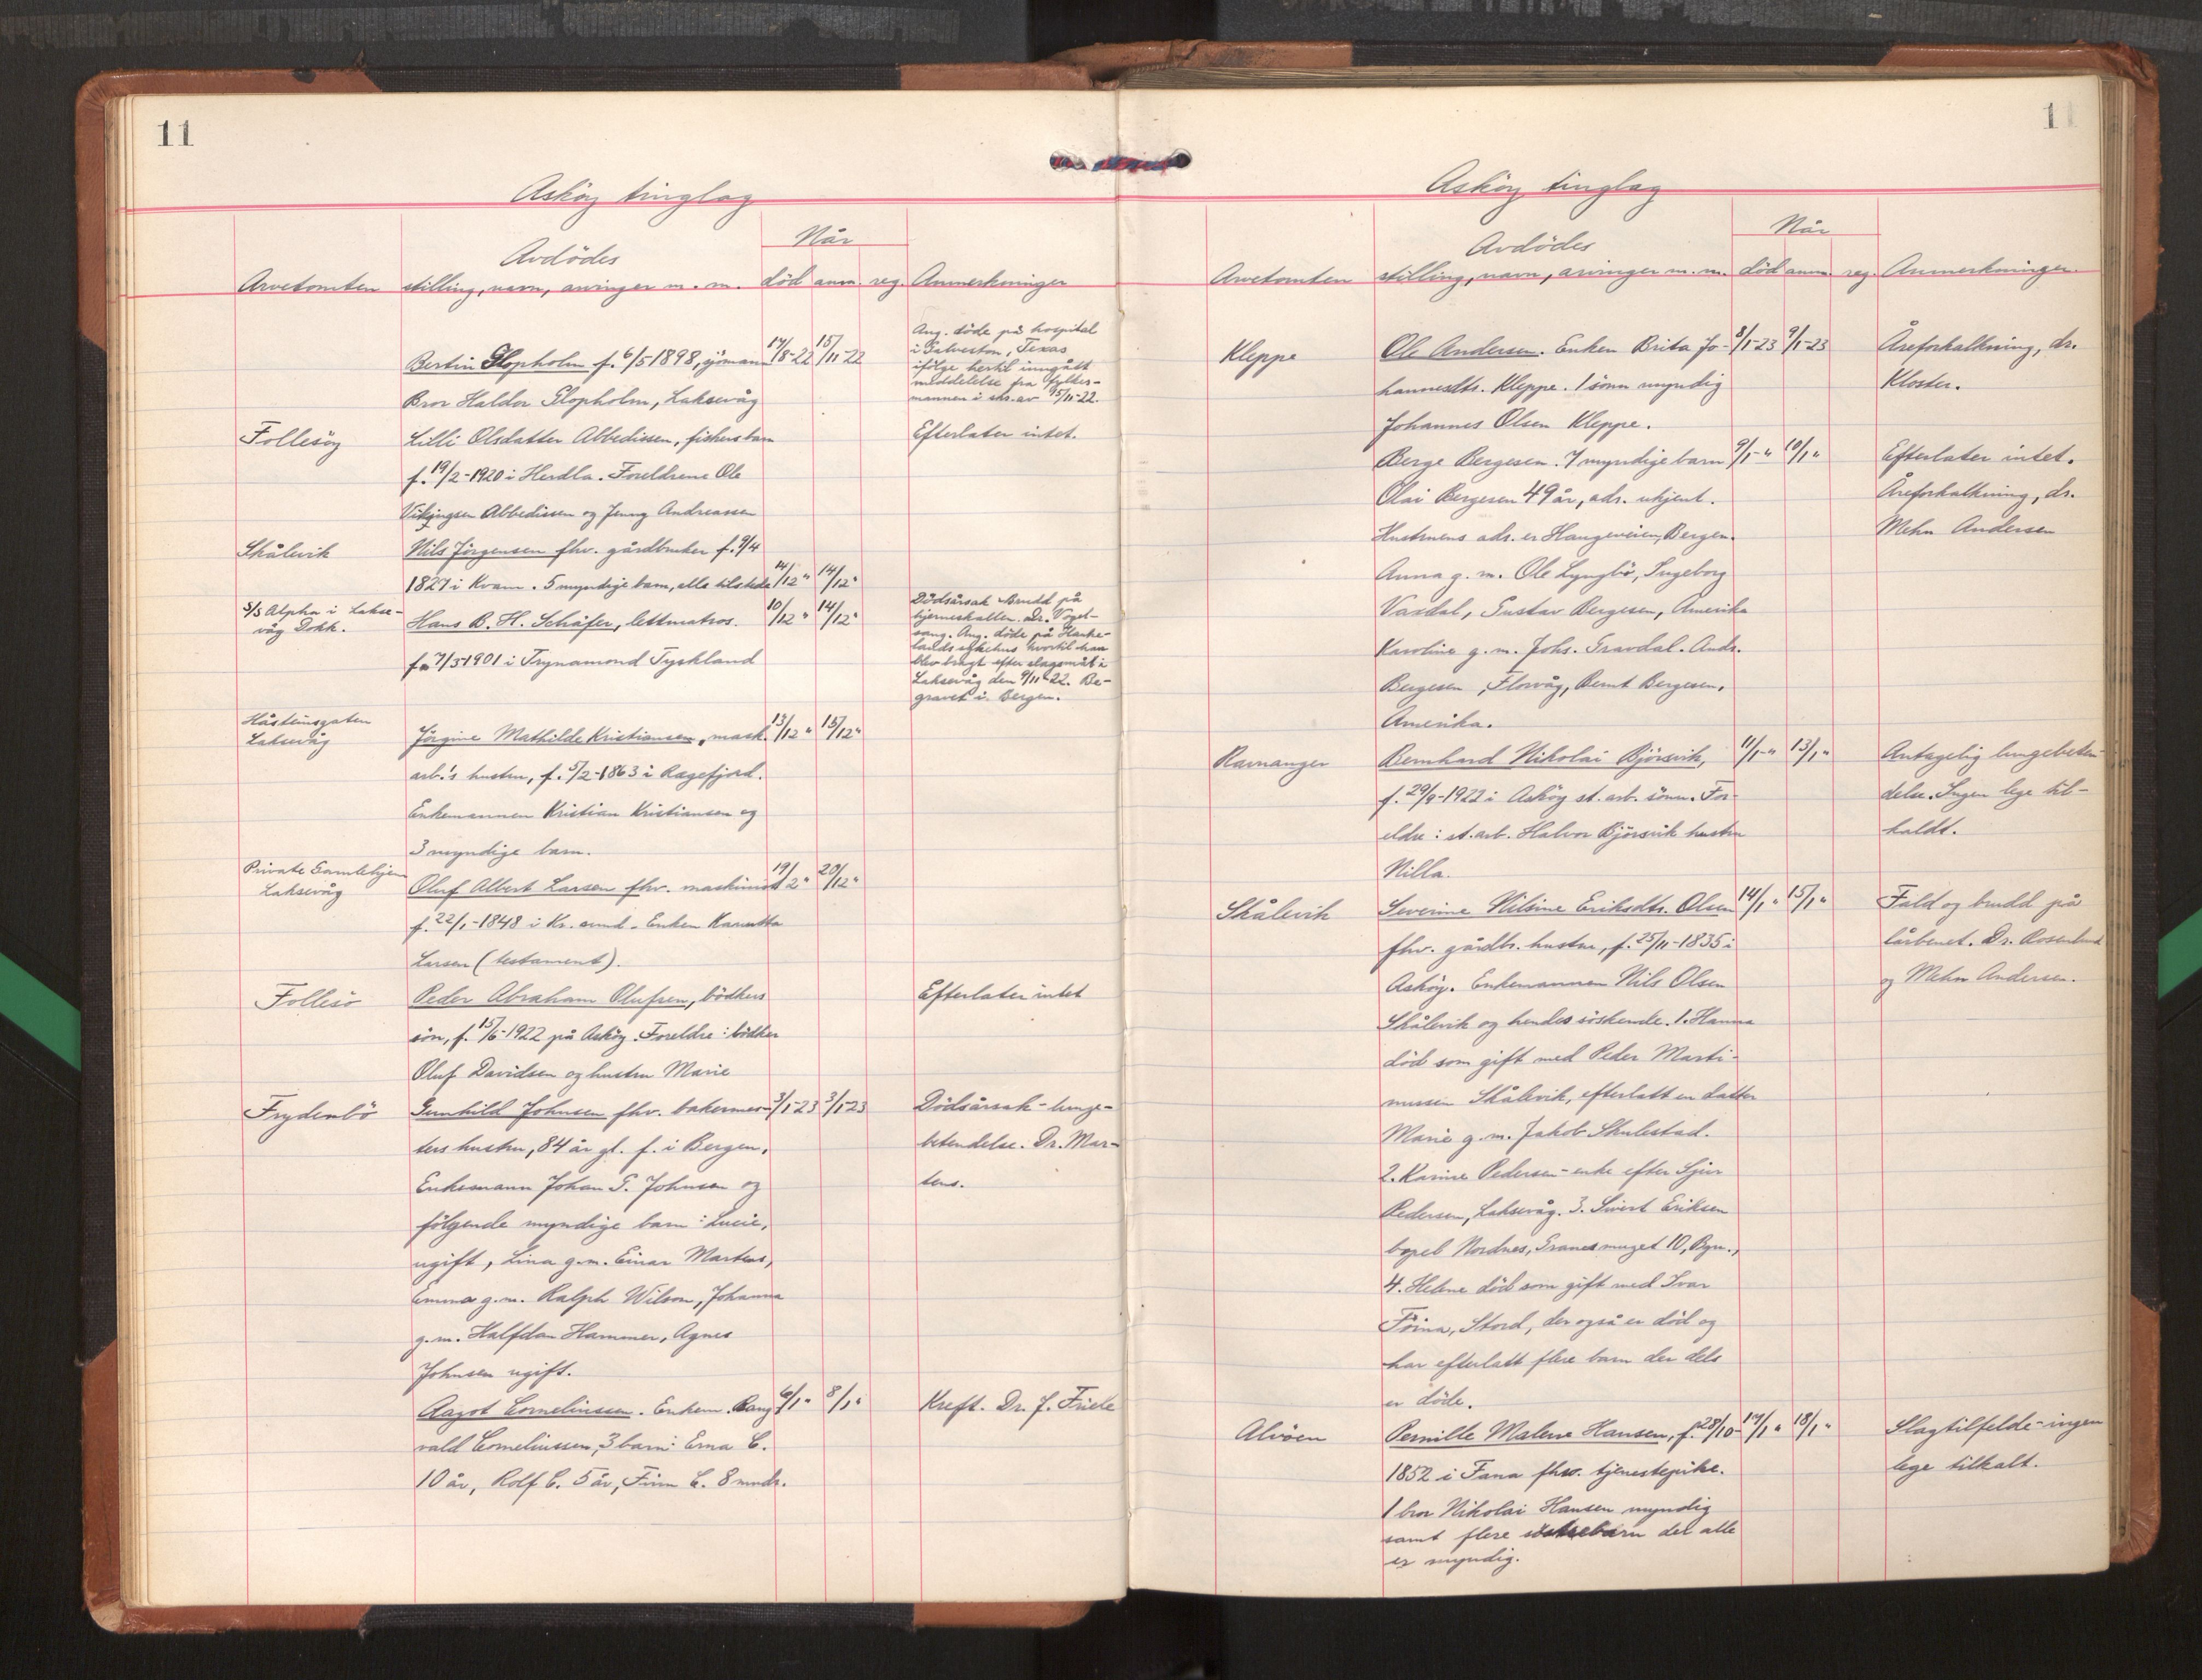 11
Askøy tinglag
Når
Avdödes
Arvetomten stilling, navn, arvinger m. m. död anm. reg. Anmerkninger
Bertin Glopholm f. 6/5 1898, sjömann 14/8-22 15/11-22
Bror Haldor Glopholm, Laksevåg
Ang. döde på hospital
i Galveston, Texas
ifölge hertil inngått
meddelelse fra fylkes-
mannen i skr. av 15/11-22.
Follesöy Lilli Olsdatter Abbedissen, fiskers barn Efterlater intet.
f. 19/2-1920 i Herdla. Foreldrene Ole
Vikingsen Abbedissen og Jenny Andreassen
Skålevik Nils Jörgensen fhv. gårdbruker f. 9/4
1827 i Kvam. 5 myndige barn, alle tilstede 14/12 " 14/12 "
S/S Alpha i Lakse-
våg Dokk.
Hans B. H. Schäfer, lettmatros. 10/12 " 14/12 "
f. 7/5 1901 i Tyskland
Dödsårsak Brudd på
hjerneskallen. Dr. Vogel-
sang. Ang. döde på Hauke-
lands sykehus hvortil han
blev bragt efter slagsmål i
Laksevåg den 9/11-22. Be-
gravet i Bergen.
Håsteinsgaten
Laksevåg
Jörgine Mathilde Kristiansen, mask. 13/12 " 15/12 "
arb.'s hustru, f. 5/2-1863 i Ragefjord.
Enkemannen Kristian Kristiansen og
3 myndige barn.
Private Gamlehjem
Laksevåg
Oluf Albert Larsen fhv. maskinist 19/12 " 20/12 "
f. 22/1-1848 i Kr. sund. Enken
Larsen (testament).
Follesö Peder Abraham Olufsen, bödkers Efterlater intet
sön, f. 15/6-1922 på Asköy. Foreldre: bödker
Oluf Davidsen og hustru Marie
Frydenbö Gunhild Johnsen fhv. bakermes- 3/1-23 3/1-23 Dödsårsak-lunge-
ters hustru, 84 år gl. f. i Bergen, betendelse. Dr. Mar-
Enkemann Johan G. Johnsen og tens.
fölgende myndige barn: Lucie,
ugift, Lina g.m. Einar Martens,
Emma g.m. Ralph Wilson, Johanna
g.m. Halfdan Hammer, Agnes
Johnsen ugift.
Aagot Corneliussen. Enkem. Rang- 6/1 " 8/1 " Kreft. Dr. J. Friele
vald Corneliussen, 3 barn: Erna C.
10 år, Rolf C. 5 år, Finn C. 8 mndr.
11
Askøy tinglag
Når
Avdödes
Arvetomten stilling, navn, arvinger m. m. död anm. reg. Anmerkninger
Kleppe Ole Andersen. Enken Brita Jo- 8/1-23 9/1-23 Åreforkalkning, dr.
hannesdtr. Kleppe. 1 sönn myndig Kloster.
Johannes Olsen Kleppe.
Berge Bergesen. 7 myndige barn 9/1-" 10/1 " Efterlater intet.
Olai Bergesen 49 år, adr. ukjent. Åreforkalkning, dr.
Hustruens adr. er Haugeveien, Bergen. Mehn Andersen
Anna g. m. Ole Lyngbö, Ingeborg
Vardal, Gustav Bergesen, Amerika
Karoline g. m. Johs. Gravdal. Andr.
Bergesen, Florvåg, Bernt Bergesen,
Amerika.
Ravnanger Bernhard Nikolai Bjôrsvik, 11/1-" 13/1 " Antagelig lungebeten-
f. 29/9-1922 i Asköy st. arb. sönn. For- delse. Ingen lege til-
eldre: st. arb. Halvor Björsvik hustru kaldt.
Nilla.
Skålevik Severine Nilsine Eriksdtr. Olsen 14/1 " 15/1 " Fald og brudd på
fhv. gårdbr. hustru, f. 25/11-1835 i lårbenet. Dr. Rosenlund
Asköy. Enkemannen Nils Olsen og Mehn Andersen.
Skålevik og hendes söskende. 1. Hanna
död som gift med Peder Marti-
nussen Skålevik, efterlatt en datter
Marie g.m. Jakob Skulestad.
2. Karine Pedersen-enke efter Sjur
Pedersen, Laksevåg. 3. Sivert Eriksen
bopel Nordnes, Granesmuget 10, Bgn.,
4. Helene död som gift med Ivar
Föina, Stord, der også er död og
har efterlatt flere barn der dels
er döde.
Alvöen Pernille Malene Hansen, f. 28/10- 17/1 " 18/1 " Slagtilfelde-ingen
1852 i Fana fhv. tjenestepike. lege tilkalt.
1 bror Nikolai Hansen myndig
samt flere der alle
er myndig.